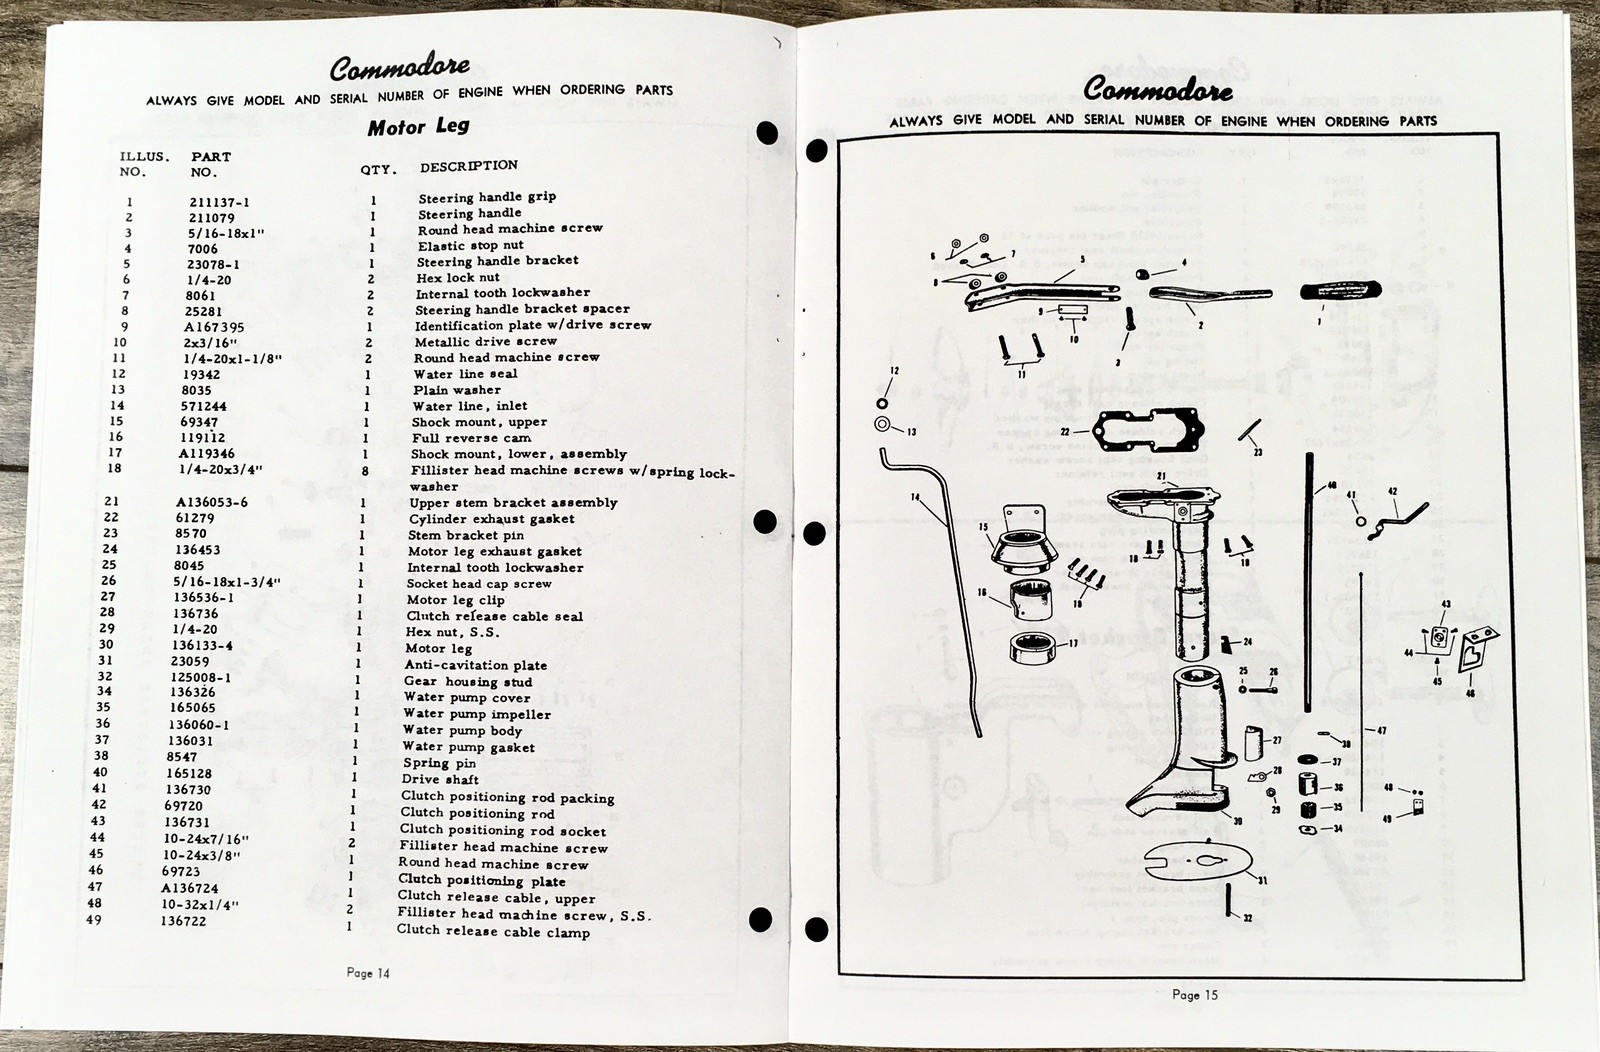 Commodore
ALWAYS GIVE MODEL AND SERIAL NUMBER OF ENGINE WHEN ORDERING PARTS
Motor Leg
ILLUS. PART
NO. NO. QTY. DESCRIPTION
1 211137-1 1 Steering handle grip
2 211079 1 Steering handle
3 5/16-18x1" 1 Round head machine screw
4 7006 1 Elastic stop nut
5 23078-1 1 Steering handle bracket
6 1/4-20 2 Hex lock nut
7 8061 2 Internal tooth lockwasher
8 25281 2 Steering handle bracket spacer
9 A167395 1 Identification plate w/drive screw
10 2x3/16" 2 Metallic drive screw
11 1/4-20x1-1/8" 2 Round head machine screw
12 19342 1 Water line seal
13 8035 1 Plain washer
14 571244 1 Water line, inlet
15 69347 1 Shock mount, upper
16 119112 1 Full reverse cam
17 A119346 1 Shock mount, lower, assembly
18 1/4-20x3/4" 8 Fillister head machine screws w/spring lock-
washer
21 A136053-6 1 Upper stem bracket assembly
22 61279 1 Cylinder exhaust gasket
23 8570 1 Stem bracket pin
24 136453 1 Motor leg exhaust gasket
25 8045 1 Internal tooth lockwasher
26 5/16-18x1-3/4" 1 Socket head cap screw
27 136536-1 1 Motor leg clip
28 136736 1 Clutch release cable seal
29 1/4-20 1 Hex nut, S.S.
30 136133-4 1 Motor leg
31 23059 1 Anti-cavitation plate
32 125008-1 1 Gear housing stud
34 136326 1 Water pump cover
35 165065 1 Water pump impeller
36 136060-1 1 Water pump body
37 136031 1 Water pump gasket
38 8547 1 Spring pin
40 165128 1 Drive shaft
41 136730 1 Clutch positioning rod packing
42 69720 1 Clutch positioning rod
43 136731 1 Clutch positioning rod socket
44 10-24x7/16" 2 Fillister head machine screw
45 10-24x3/8" 1 Round head machine screw
46 69723 1 Clutch positioning plate
47 A136724 1 Clutch release cable, upper
48 10-32x1/4" 2 Fillister head machine screw, S.S.
49 136722 1 Clutch release cable clamp
Page 14
Commodore
ALWAYS GIVE MODEL AND SERIAL NUMBER OF ENGINE WHEN ORDERING PARTS
6 7 5 4
8
9 10 2 1
3
11
12
13
22
23
14
21
40
41
42
15
18 18
16
18
17
24
43
44
45
46
25 26
27
47
38
37
28
36
48
29
35
49
30
34
31
32
Page 15